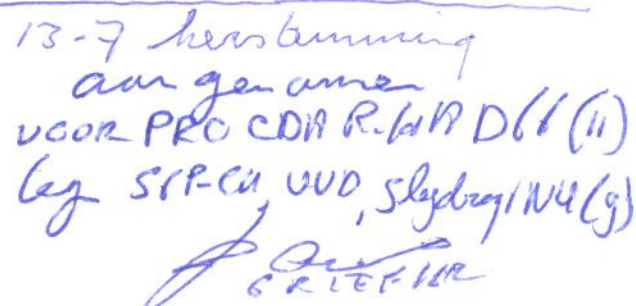 13-7 herstemming
aangenomen
voor PRO CDA R.WA D66 (11)
teg SGP-CU, VVD, Slydreg/NU (9)
GRIFFIER